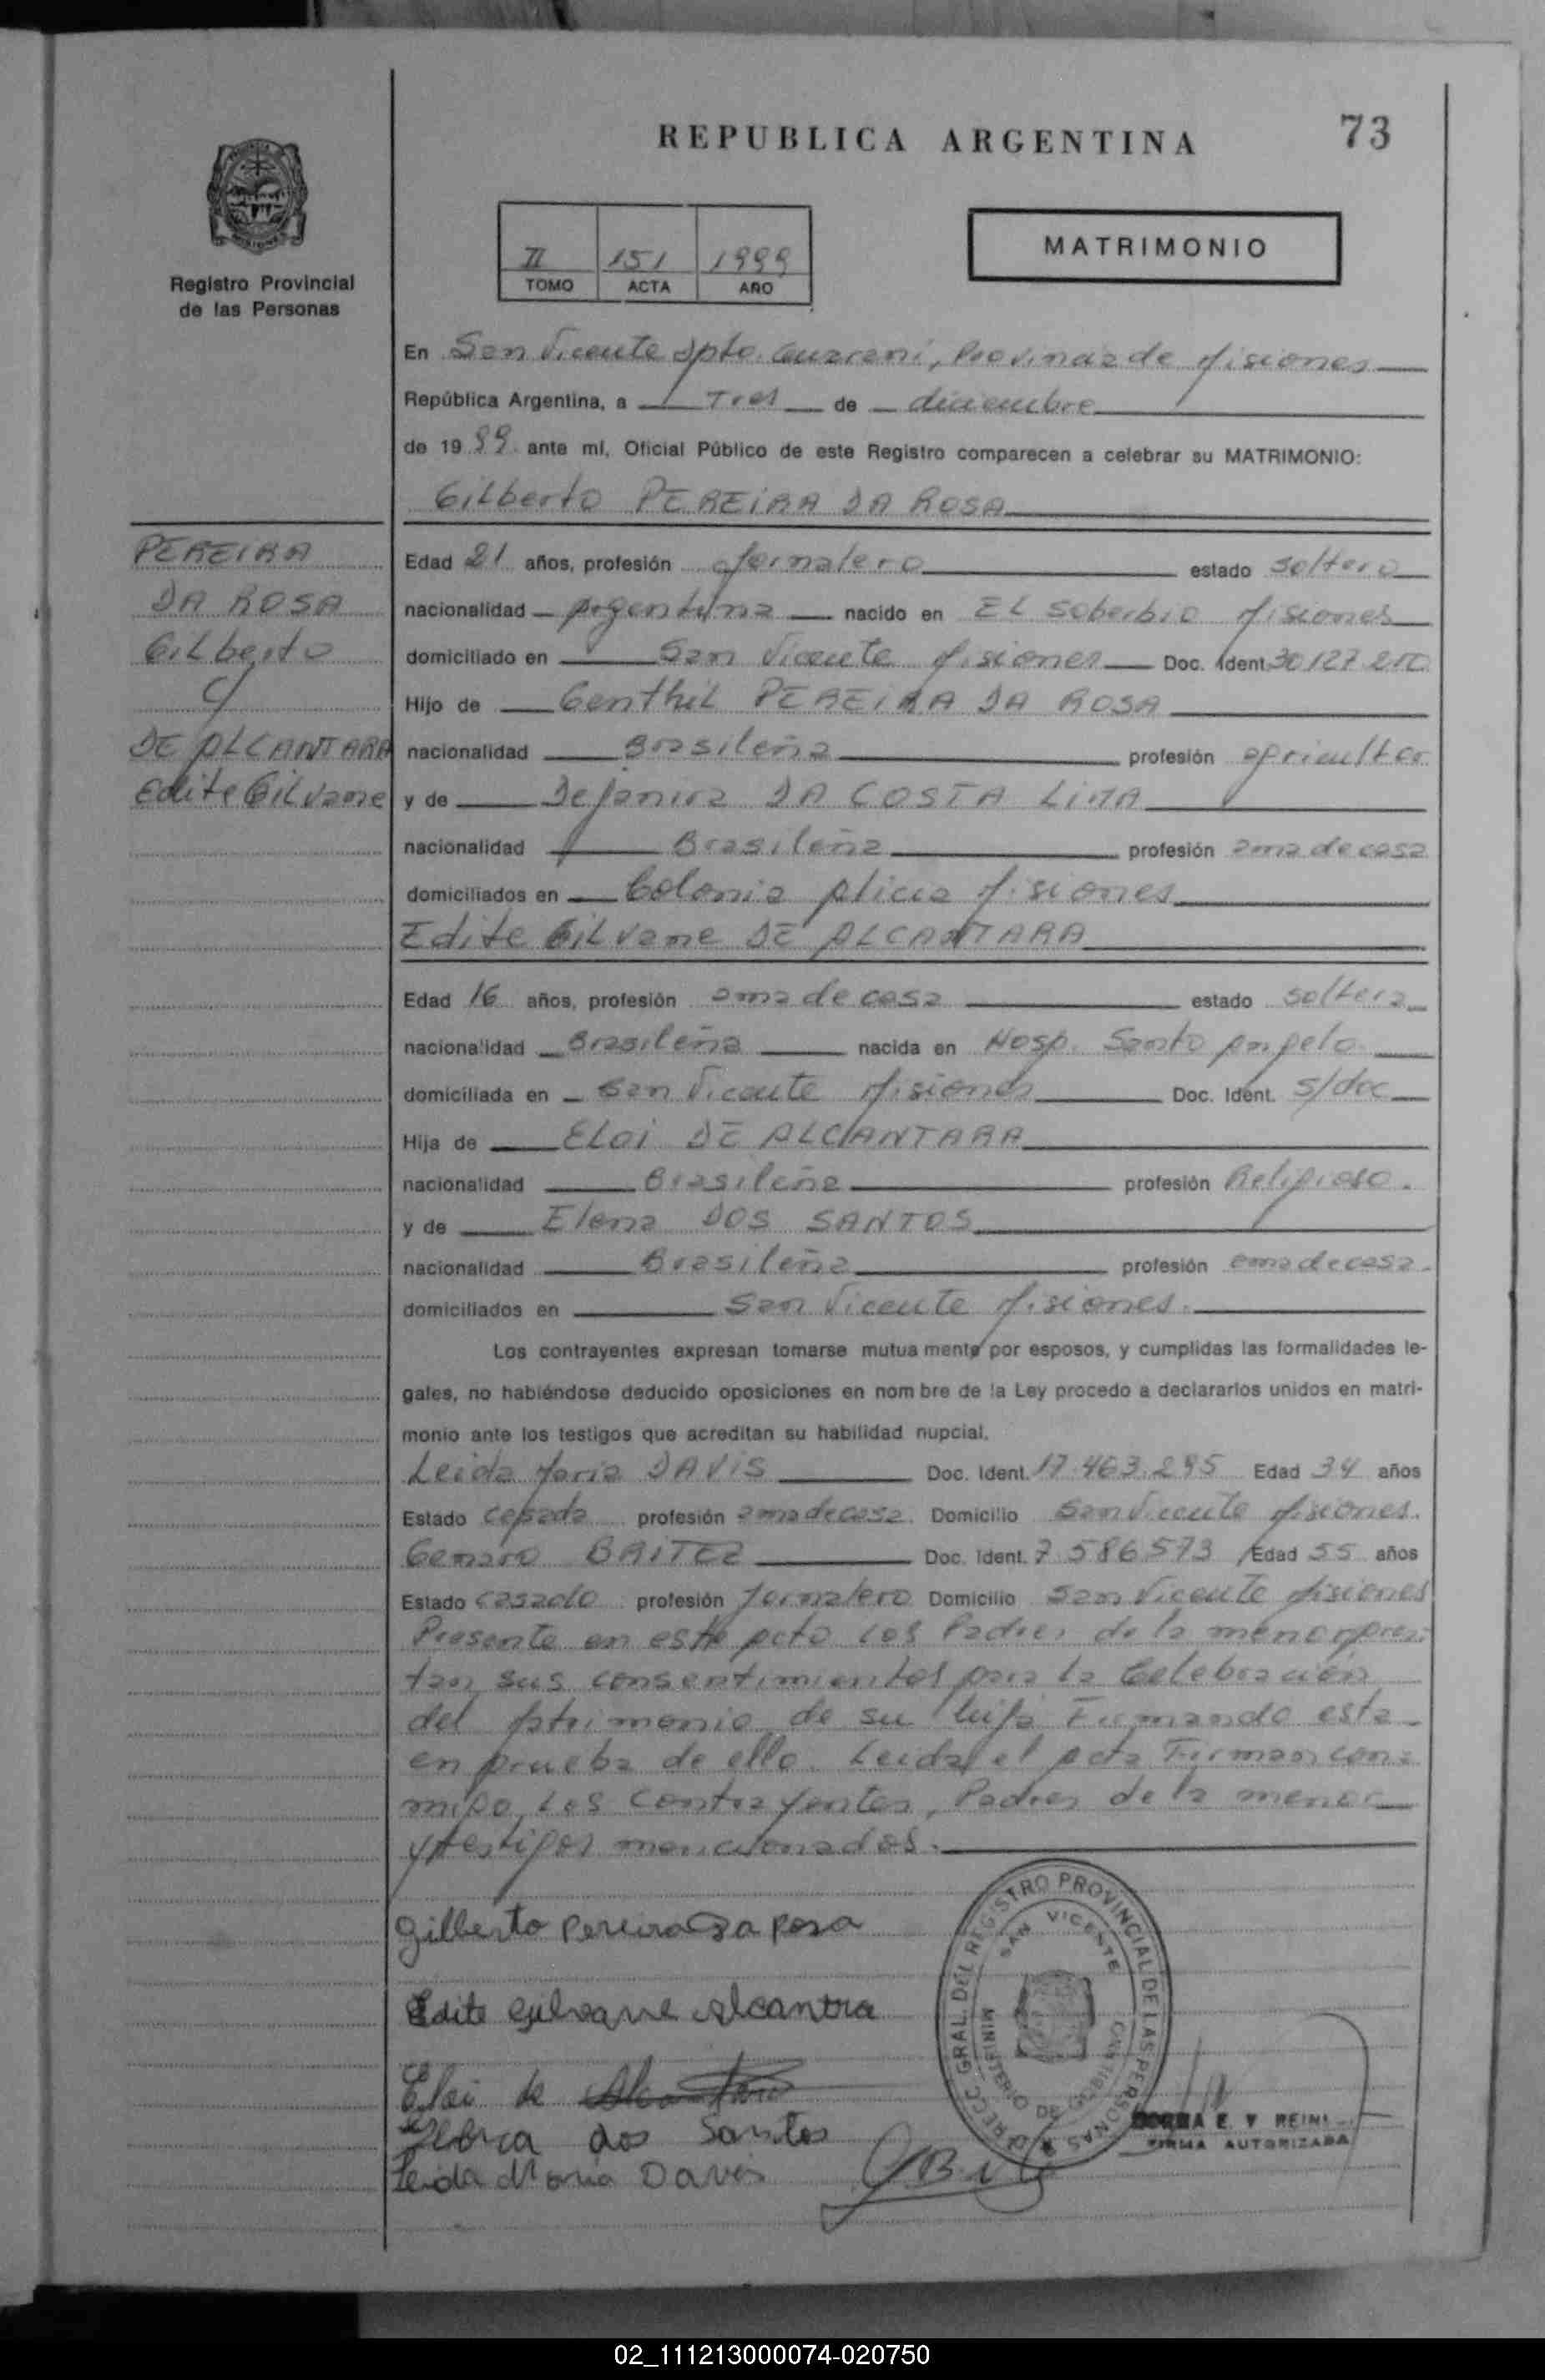 REPUBLICA ARGENTINA
73
Registro Provincial
de las Personas
II 151 1999
TOMO ACTA AÑO
MATRIMONIO
En San Vicente Dpto. Guarani, Provincia de Misiones
República Argentina, a Tres de diciembre
de 1999 ante mí, Oficial Público de este Registro comparecen a celebrar su MATRIMONIO:
Gilberto PEREIRA DA ROSA
PEREIRA
DA ROSA
Gilberto
y
DE ALCANTARA
Edite Gilvane
Edad 21 años, profesión Jornalero estado soltero
nacionalidad Argentina nacido en EL Soberbio Misiones
domiciliado en San Vicente Misiones Doc. Ident. 30127210
Hijo de Genthil PEREIRA DA ROSA
nacionalidad Brasileña profesión agricultor
y de Dejanira DA COSTA LIMA
nacionalidad Brasileña profesión ama de casa
domiciliados en Colonia Alicia Misiones
Edite Gilvane DE ALCANTARA
Edad 16 años, profesión ama de casa estado soltera
nacionalidad Brasileña nacida en Hosp. Santo Angelo
domiciliada en San Vicente Misiones Doc. Ident. S/doc
Hija de ELOI DE ALCANTARA
nacionalidad Brasileña profesión Religioso.
y de Elena DOS SANTOS
nacionalidad Brasileña profesión ama de casa.
domiciliados en San Vicente Misiones.
Los contrayentes expresan tomarse mutua mente por esposos, y cumplidas las formalidades le-
gales, no habiéndose deducido oposiciones en nom bre de la Ley procedo a declararlos unidos en matri-
monio ante los testigos que acreditan su habilidad nupcial.
Leida Maria DAVIS Doc. Ident. 17.463.295 Edad 34 años
Estado casada profesión ama de casa. Domicilio San Vicente Misiones.
Genaro BRITEZ Doc. Ident. 7.586573 Edad 55 años
Estado casado profesión Jornalero Domicilio San Vicente Misiones
Presente en este acto los Padres de la menor pres-
tan sus consentimientos para la Celebración
del Matrimonio de su hija Firmando esta
en prueba de ello. Leida el acta Firman con-
migo, Los Contrayentes, Padres de la menor
y testigos mencionados.
Gilberto Pereira Da Rosa
Edite Gilvane Alcantra
Eloi de Alcantara
dos Santos
Leida Maria Davis
DIRECC. GRAL. DEL REGISTRO PROVINCIAL DE LAS PERSONAS
SAN VICENTE
MINISTERIO DE GOBIERNO
E. V REINI
FIRMA AUTORIZADA
02_111213000074-020750